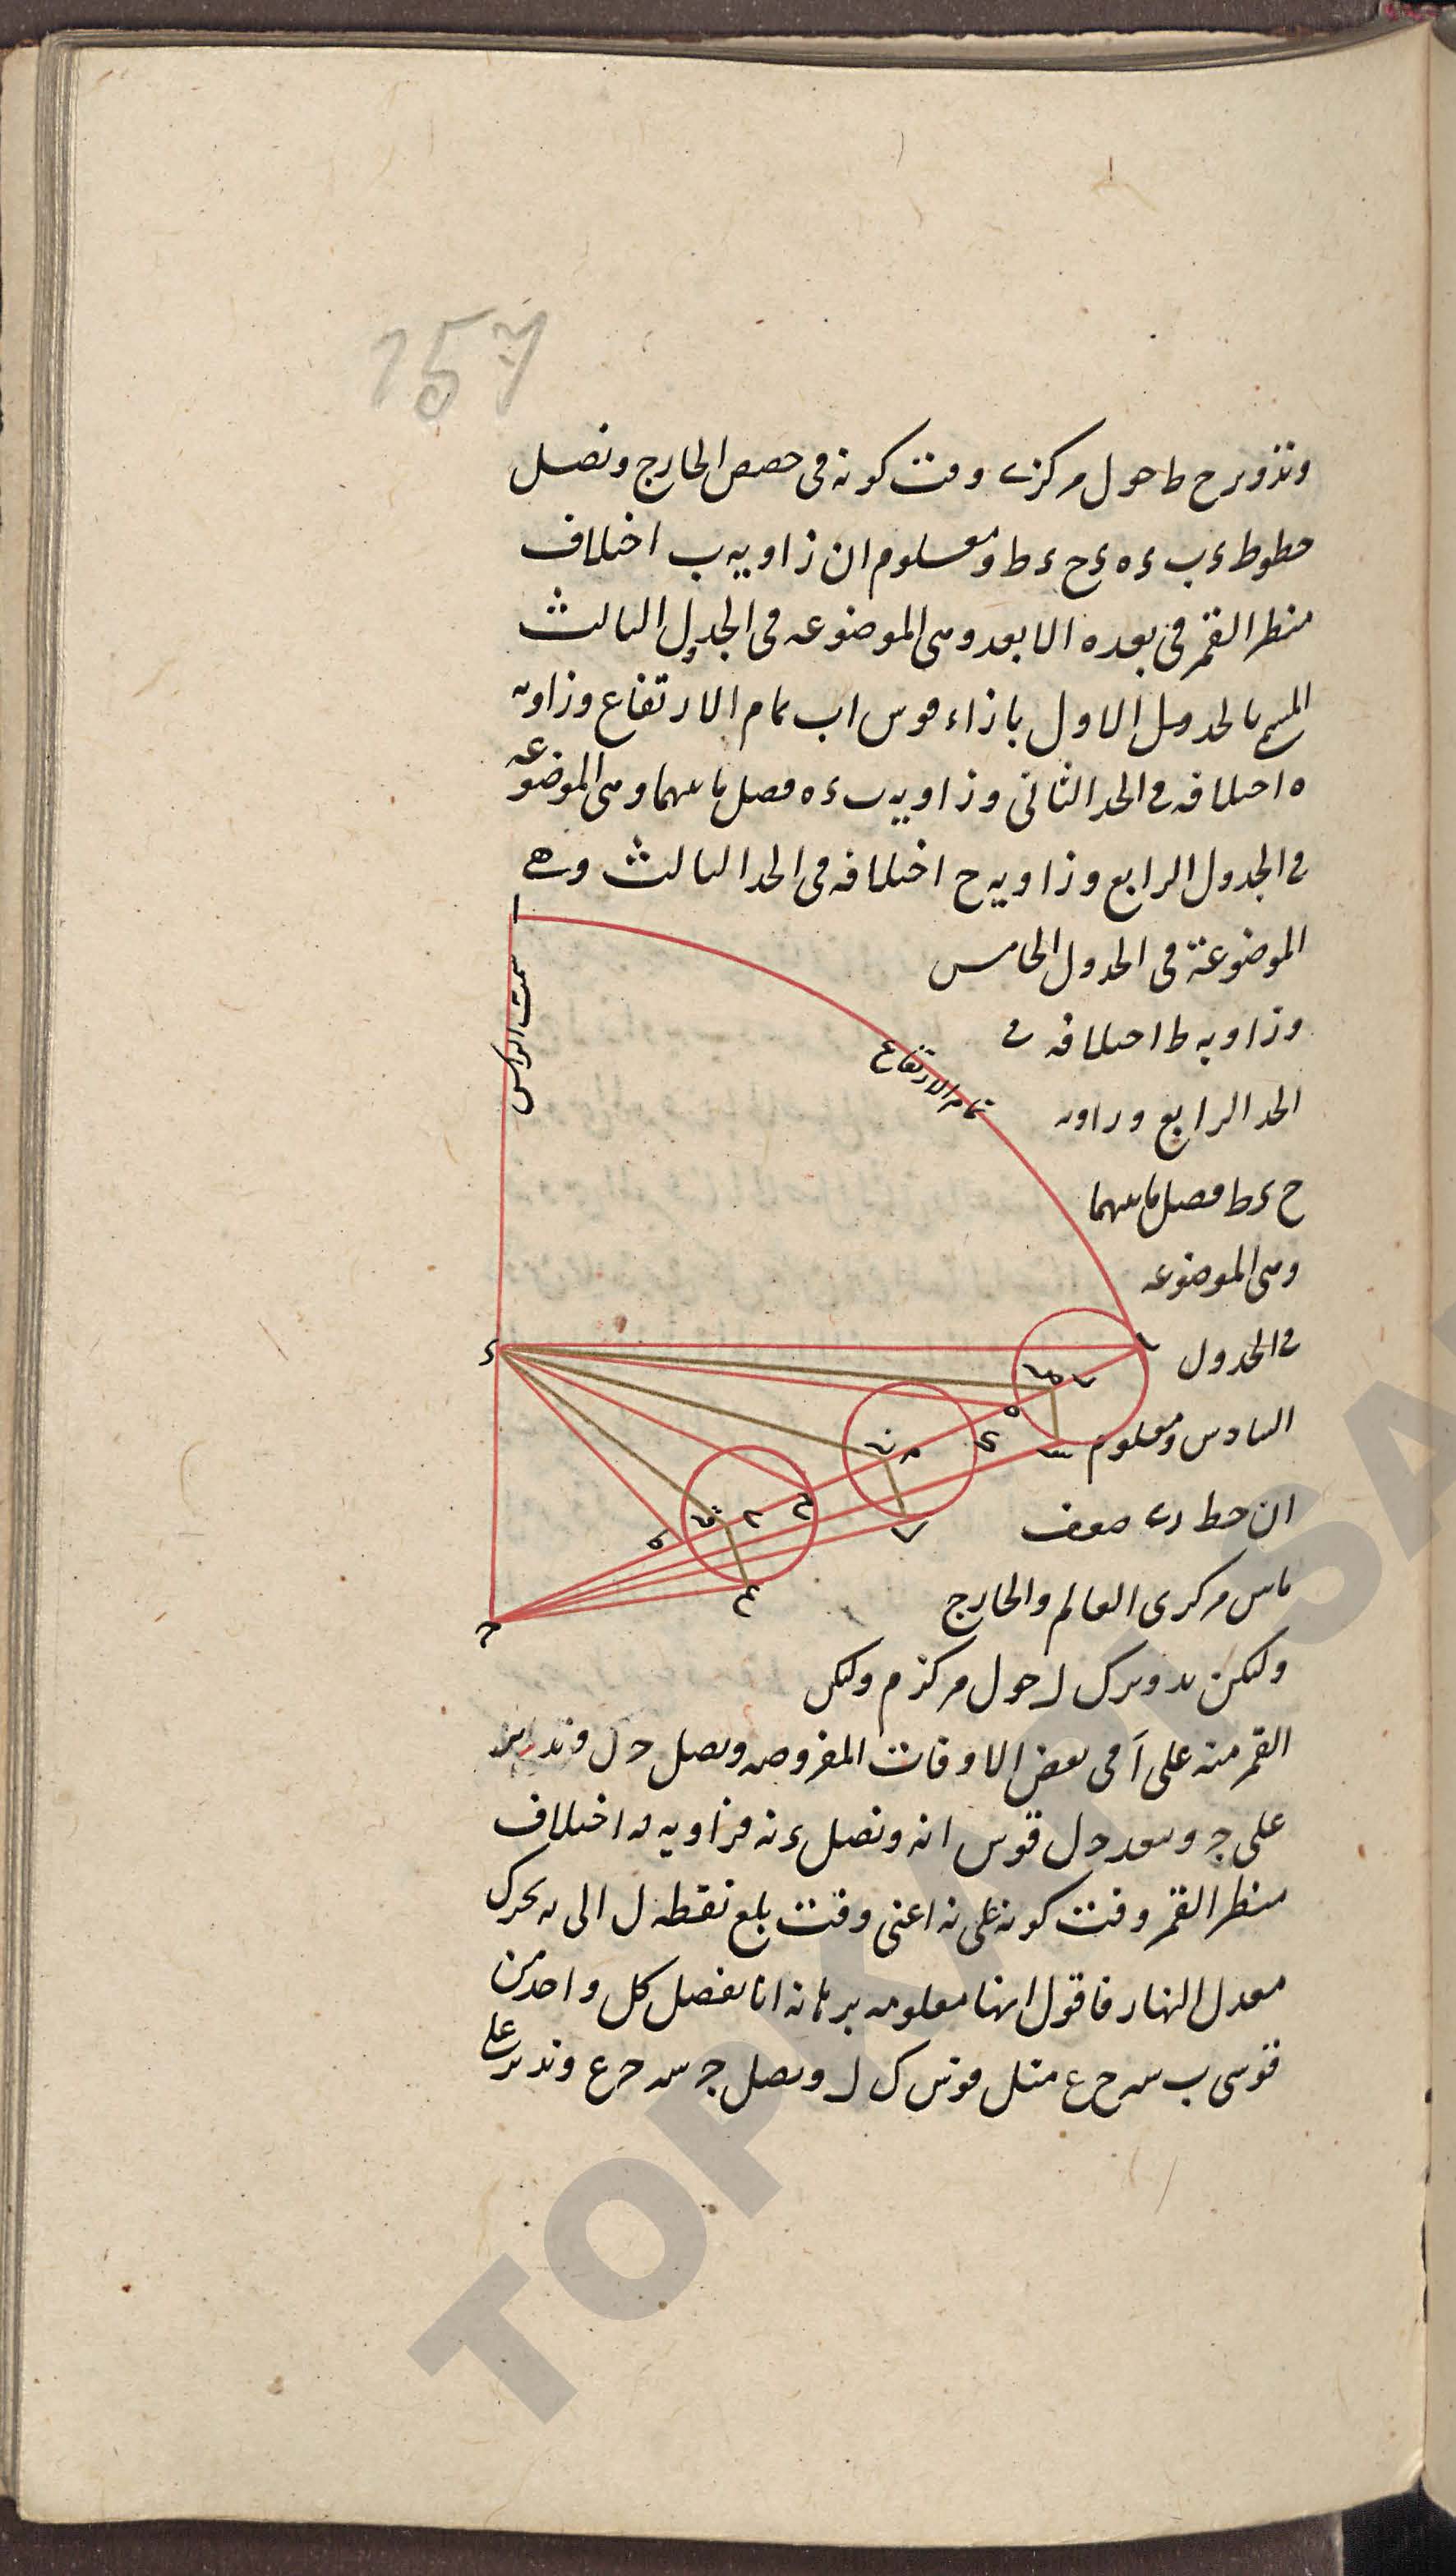 157
وتدوير ح ط حول مركز ى وقت كونه فى حضيض الخارج ونصل
خطوط ء ب ء ه ء ح ء ط ومعلوم ان زاويه ب اختلاف
منظر القمر فى بعده الابعد وهى الموضوعه فى الجدول الثالث
بالجدول الاول بازاء قوس ا ب تمام الارتفاع وزاويه
ه اختلافه فى الحد الثانى وزاويه ب ء ه فضل ما بينهما وهى الموضوعه
فى الجدول الرابع وزاويه ح اختلافه فى الحد الثالث وهى
الموضوعة فى الجدول الخامس
وزاويه ط اختلافه فى
الحد الرابع وزاويه
ح ء ط فضل ما بينهما
وهى الموضوعه
فى الجدول
السادس ومعلوم
ان خط ضعف
ما بين مركزى العالم والخارج
وليكن تدوير ك ل حول مركز م وليكن
القمر منه على آ فى بعض الاوقات المفروضه ونصل ح ل وندير
على ج وببعد ج ل قوس ل نه ونصل ء نه فزاويه نه اختلاف
منظر القمر وقت كونه على نه اعنى وقت بلغ نقطه ل الى نه بحركه
معدل النهار فاقول انها معلومه برهانه انا نفصل كل واحد من
قوسى ب سه ح ع مثل قوس ك ل ونصل ج سه ج ع وندير على
سمت الراس
تمام الارتفاع
TOPKAPI SA